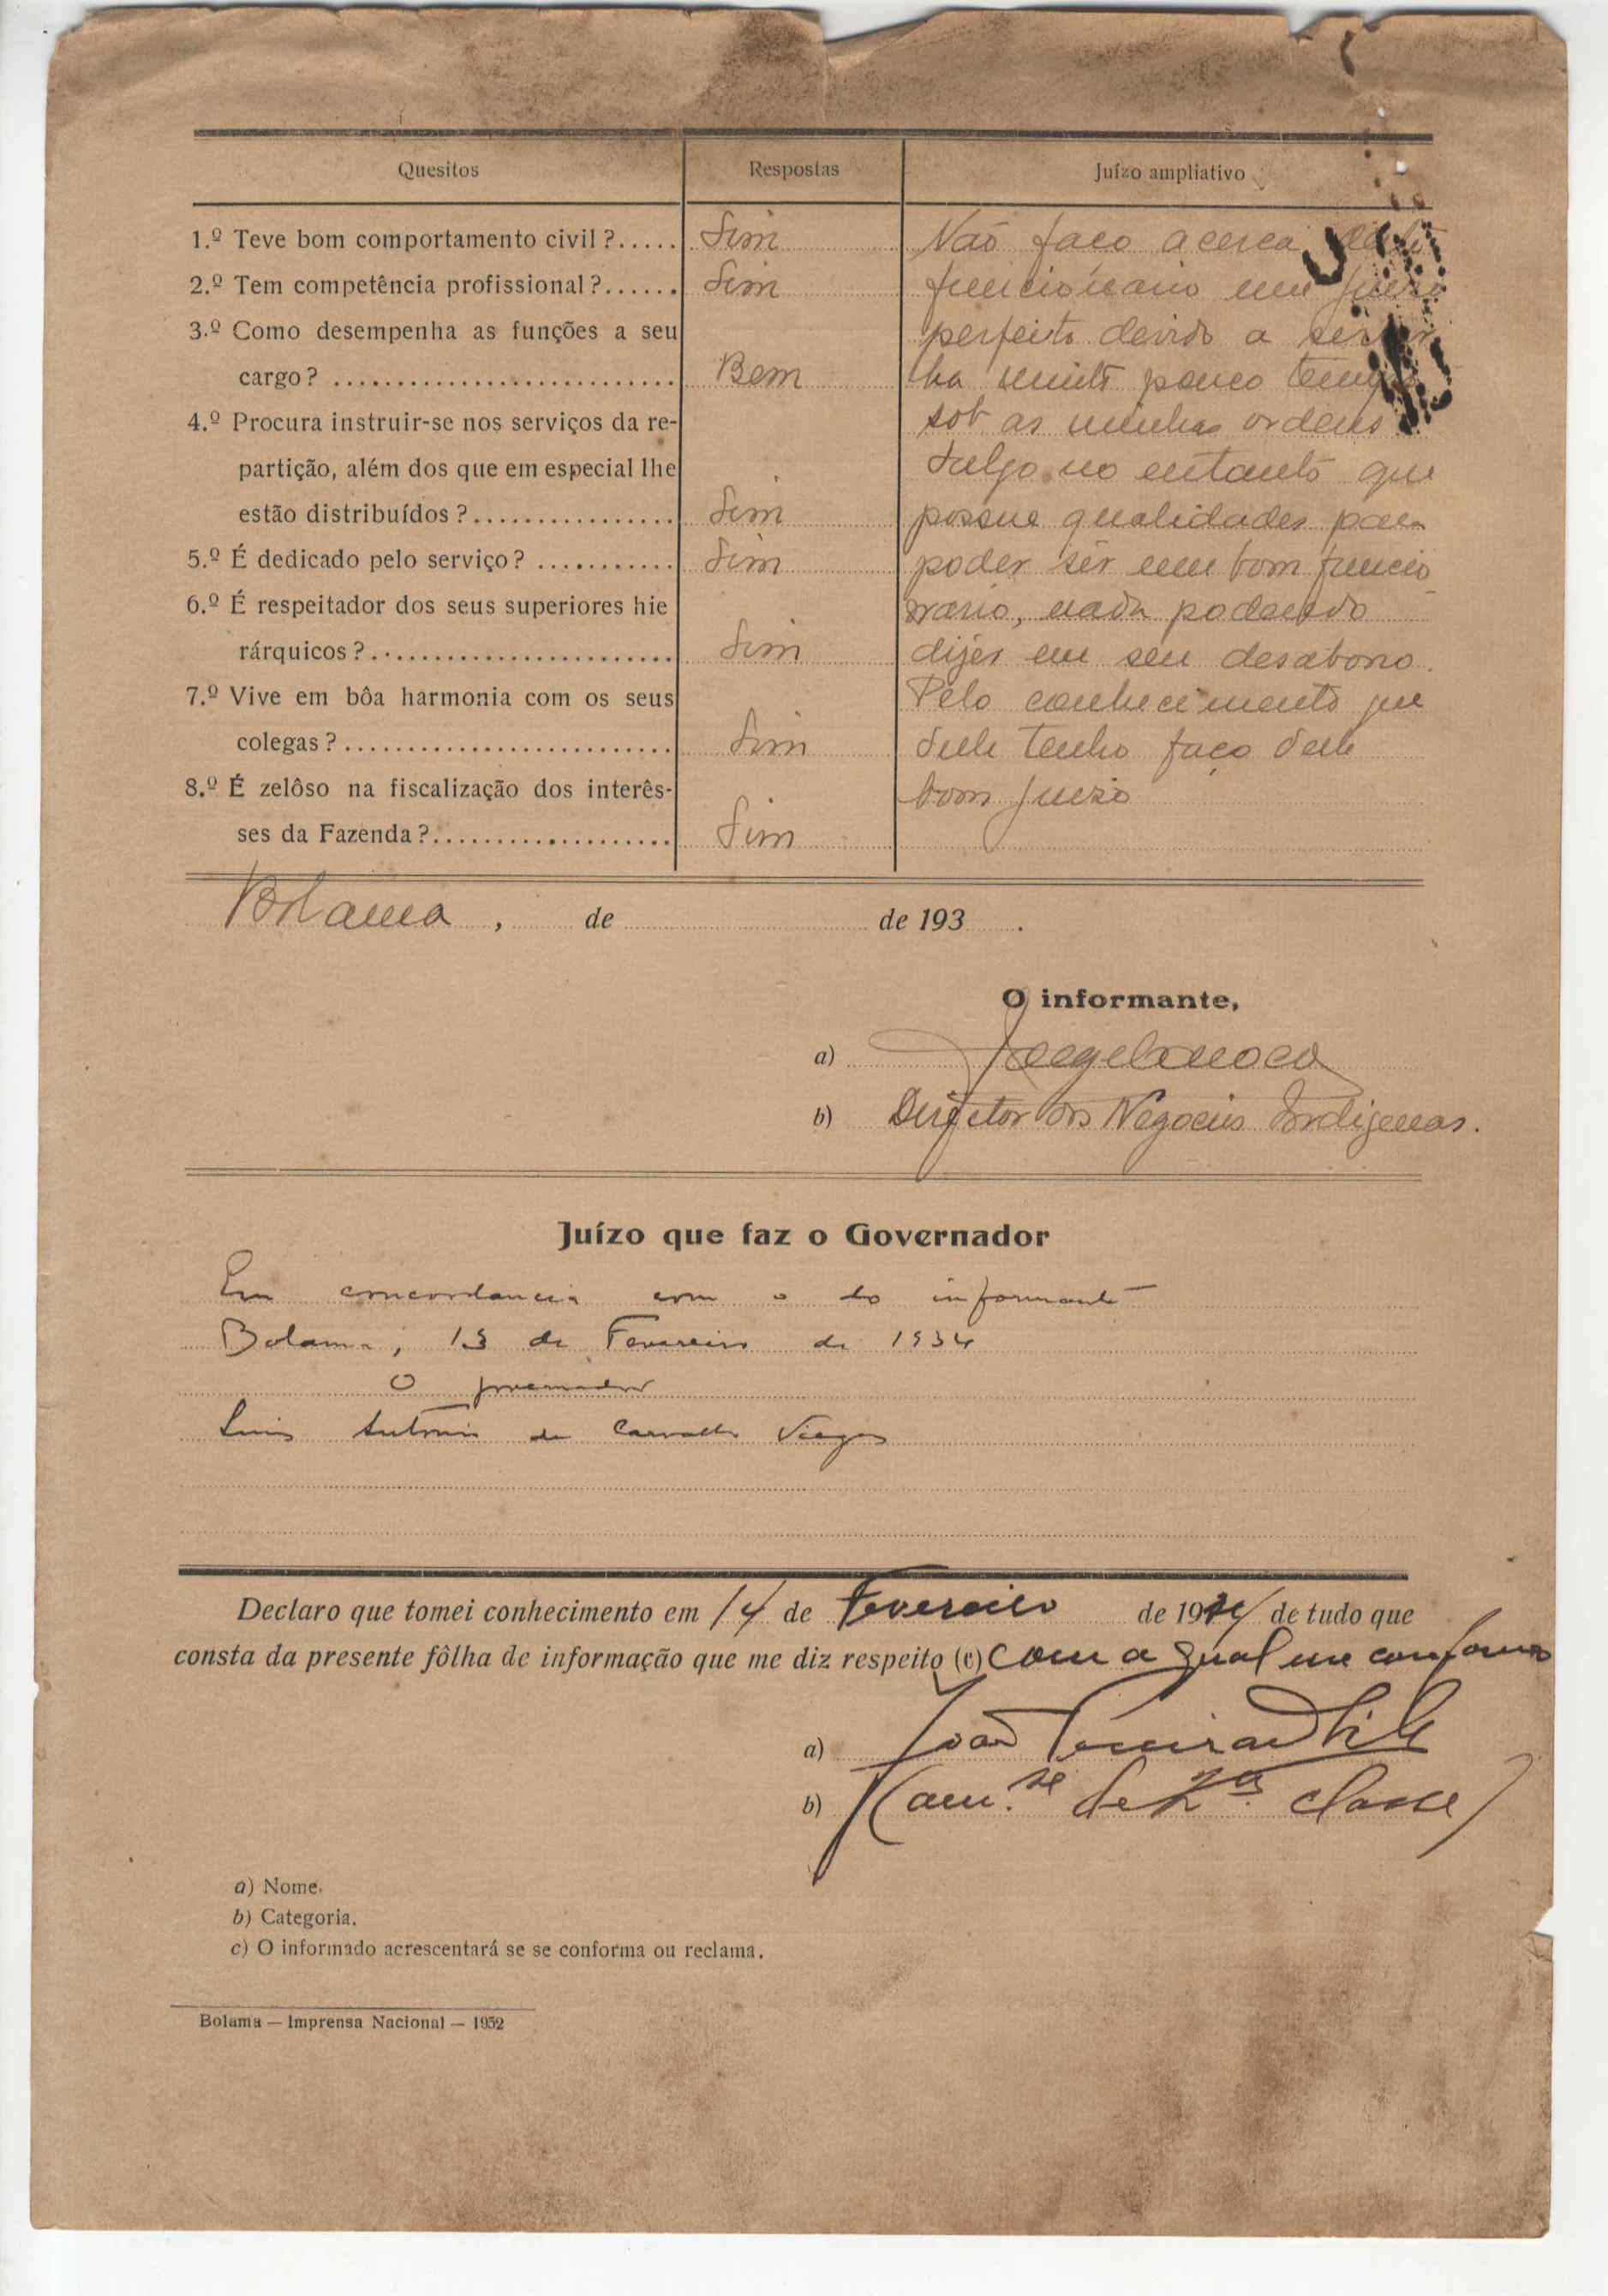 Quesitos Respostas Juízo ampliativo
1.º Teve bom comportamento civil ?..... Sim Não faço acerca deste
2.º Tem competência profissional ?...... Sim funcionario um juizo
3.º Como desempenha as funções a seu perfeito devido a servir
cargo ? ........................... Bem ha muito pouco tempo
4.º Procura instruir-se nos serviços da re- sob as minhas ordens
partição, além dos que em especial lhe Julgo no entanto que
estão distribuídos ?................ Sim possue qualidades para
5.º É dedicado pelo serviço ? ........... Sim poder ser um bom funcio
6.º É respeitador dos seus superiores hie nario, nada podendo
rárquicos ?........................ Sim dizer em seu desabono.
7.º Vive em bôa harmonia com os seus Pelo conhecimento que
colegas ?.......................... Sim dele tenho faço dele
8.º É zelôso na fiscalização dos interês- bom juizo
ses da Fazenda ?................... Sim
Bolama, de de 193 .
O informante,
a)
b) Diretor dos Negocios Indigenas.
Juízo que faz o Governador
Em concordancia com o do informante
Bolama, 13 de Fevereiro de 1934
O governador
Luis António de Carvalho Viegas
Declaro que tomei conhecimento em 14 de Fevereiro de 1934 de tudo que
consta da presente fôlha de informação que me diz respeito (c) com a qual me conformo
a) João
b) (am.se de 2ª classe)
a) Nome.
b) Categoria.
c) O informado acrescentará se se conforma ou reclama.
Bolama — Imprensa Nacional — 1932